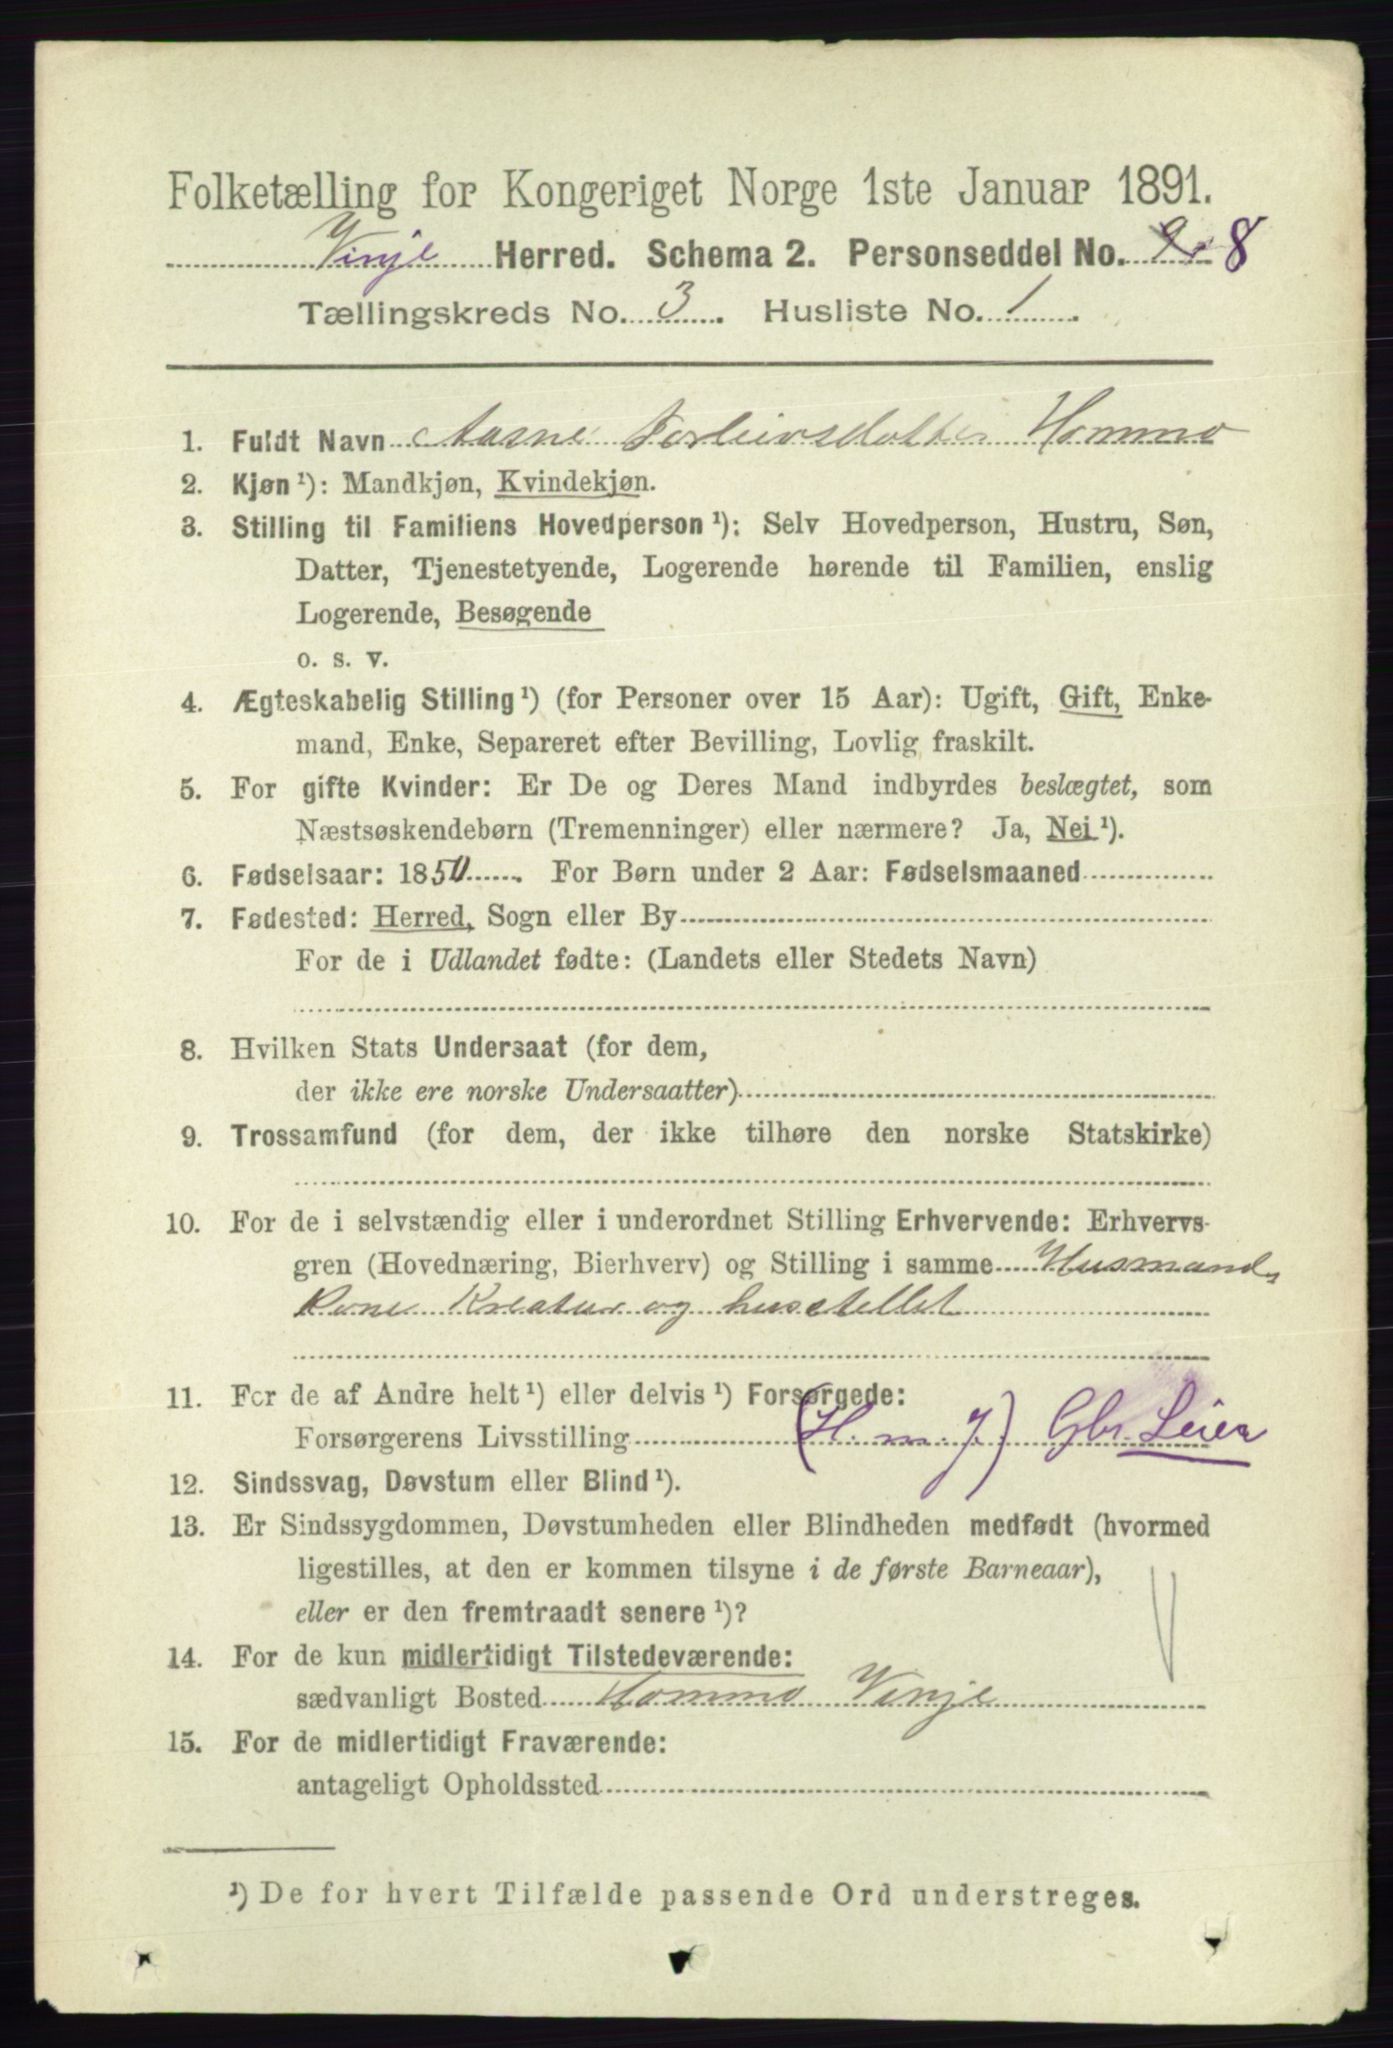 Folketælling for Kongeriget Norge 1ste Januar 1891.
Vinje Herred. Schema 2. Personseddel No. 9 8
Tællingskreds No. 3. Husliste No. 1.
1. Fuldt Navn Aasne Torleivsdatter Hommo
2. Kjøn¹): Mandkjøn, Kvindekjøn.
3. Stilling til Familiens Hovedperson¹): Selv Hovedperson, Hustru, Søn,
Datter, Tjenestetyende, Logerende hørende til Familien, enslig
Logerende, Besøgende
o. s. v.
4. Ægteskabelig Stilling¹) (for Personer over 15 Aar): Ugift, Gift, Enke-
mand, Enke, Separeret efter Bevilling, Lovlig fraskilt.
5. For gifte Kvinder: Er De og Deres Mand indbyrdes beslægtet, som
Næstsøskendebørn (Tremenninger) eller nærmere? Ja, Nei¹).
6. Fødselsaar: 1850. For Børn under 2 Aar: Fødselsmaaned
7. Fødested: Herred, Sogn eller By
For de i Udlandet fødte: (Landets eller Stedets Navn)
8. Hvilken Stats Undersaat (for dem,
der ikke ere norske Undersaatter)
9. Trossamfund (for dem, der ikke tilhøre den norske Statskirke)
10. For de i selvstændig eller i underordnet Stilling Erhvervende: Erhvervs-
gren (Hovednæring, Bierhverv) og Stilling i samme Husmands
Kone Kreatur og husstellet
11. For de af Andre helt¹) eller delvis¹) Forsørgede:
Forsørgerens Livsstilling (H. m. J.) Gbr. Leier
12. Sindssvag, Døvstum eller Blind¹).
13. Er Sindssygdommen, Døvstumheden eller Blindheden medfødt (hvormed
ligestilles, at den er kommen tilsyne i de første Barneaar),
eller er den fremtraadt senere¹)?
14. For de kun midlertidigt Tilstedeværende:
sædvanligt Bosted Hommo Vinje
15. For de midlertidigt Fraværende:
antageligt Opholdssted
¹) De for hvert Tilfælde passende Ord understreges.